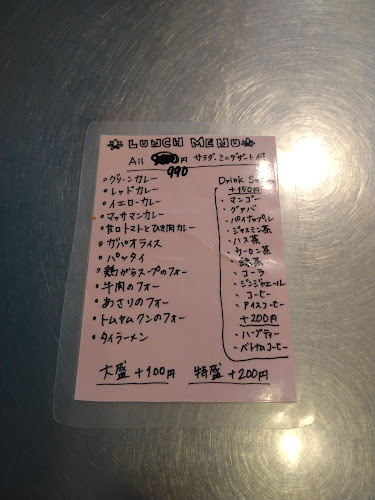 LUNCH MENU
All 990円 サラダ・ミニデザート付
・グリーンカレー
・レッドカレー
・イエローカレー
・マッサマンカレー
・甘口トマトとひき肉カレー
・ガパオライス
・パッタイ
・鶏がらスープのフォー
・牛肉のフォー
・あさりのフォー
・トムヤムクンのフォー
・タイラーメン
Drink
+150円
・マンゴー
・グァバ
・パイナップル
・ジャスミン茶
・ハス茶
・ウーロン茶
・緑茶
・コーラ
・ジンジャエール
・コーヒー
・アイスコーヒー
+200円
・ハーブティー
・ベトナムコーヒー
大盛 +100円 特盛 +200円